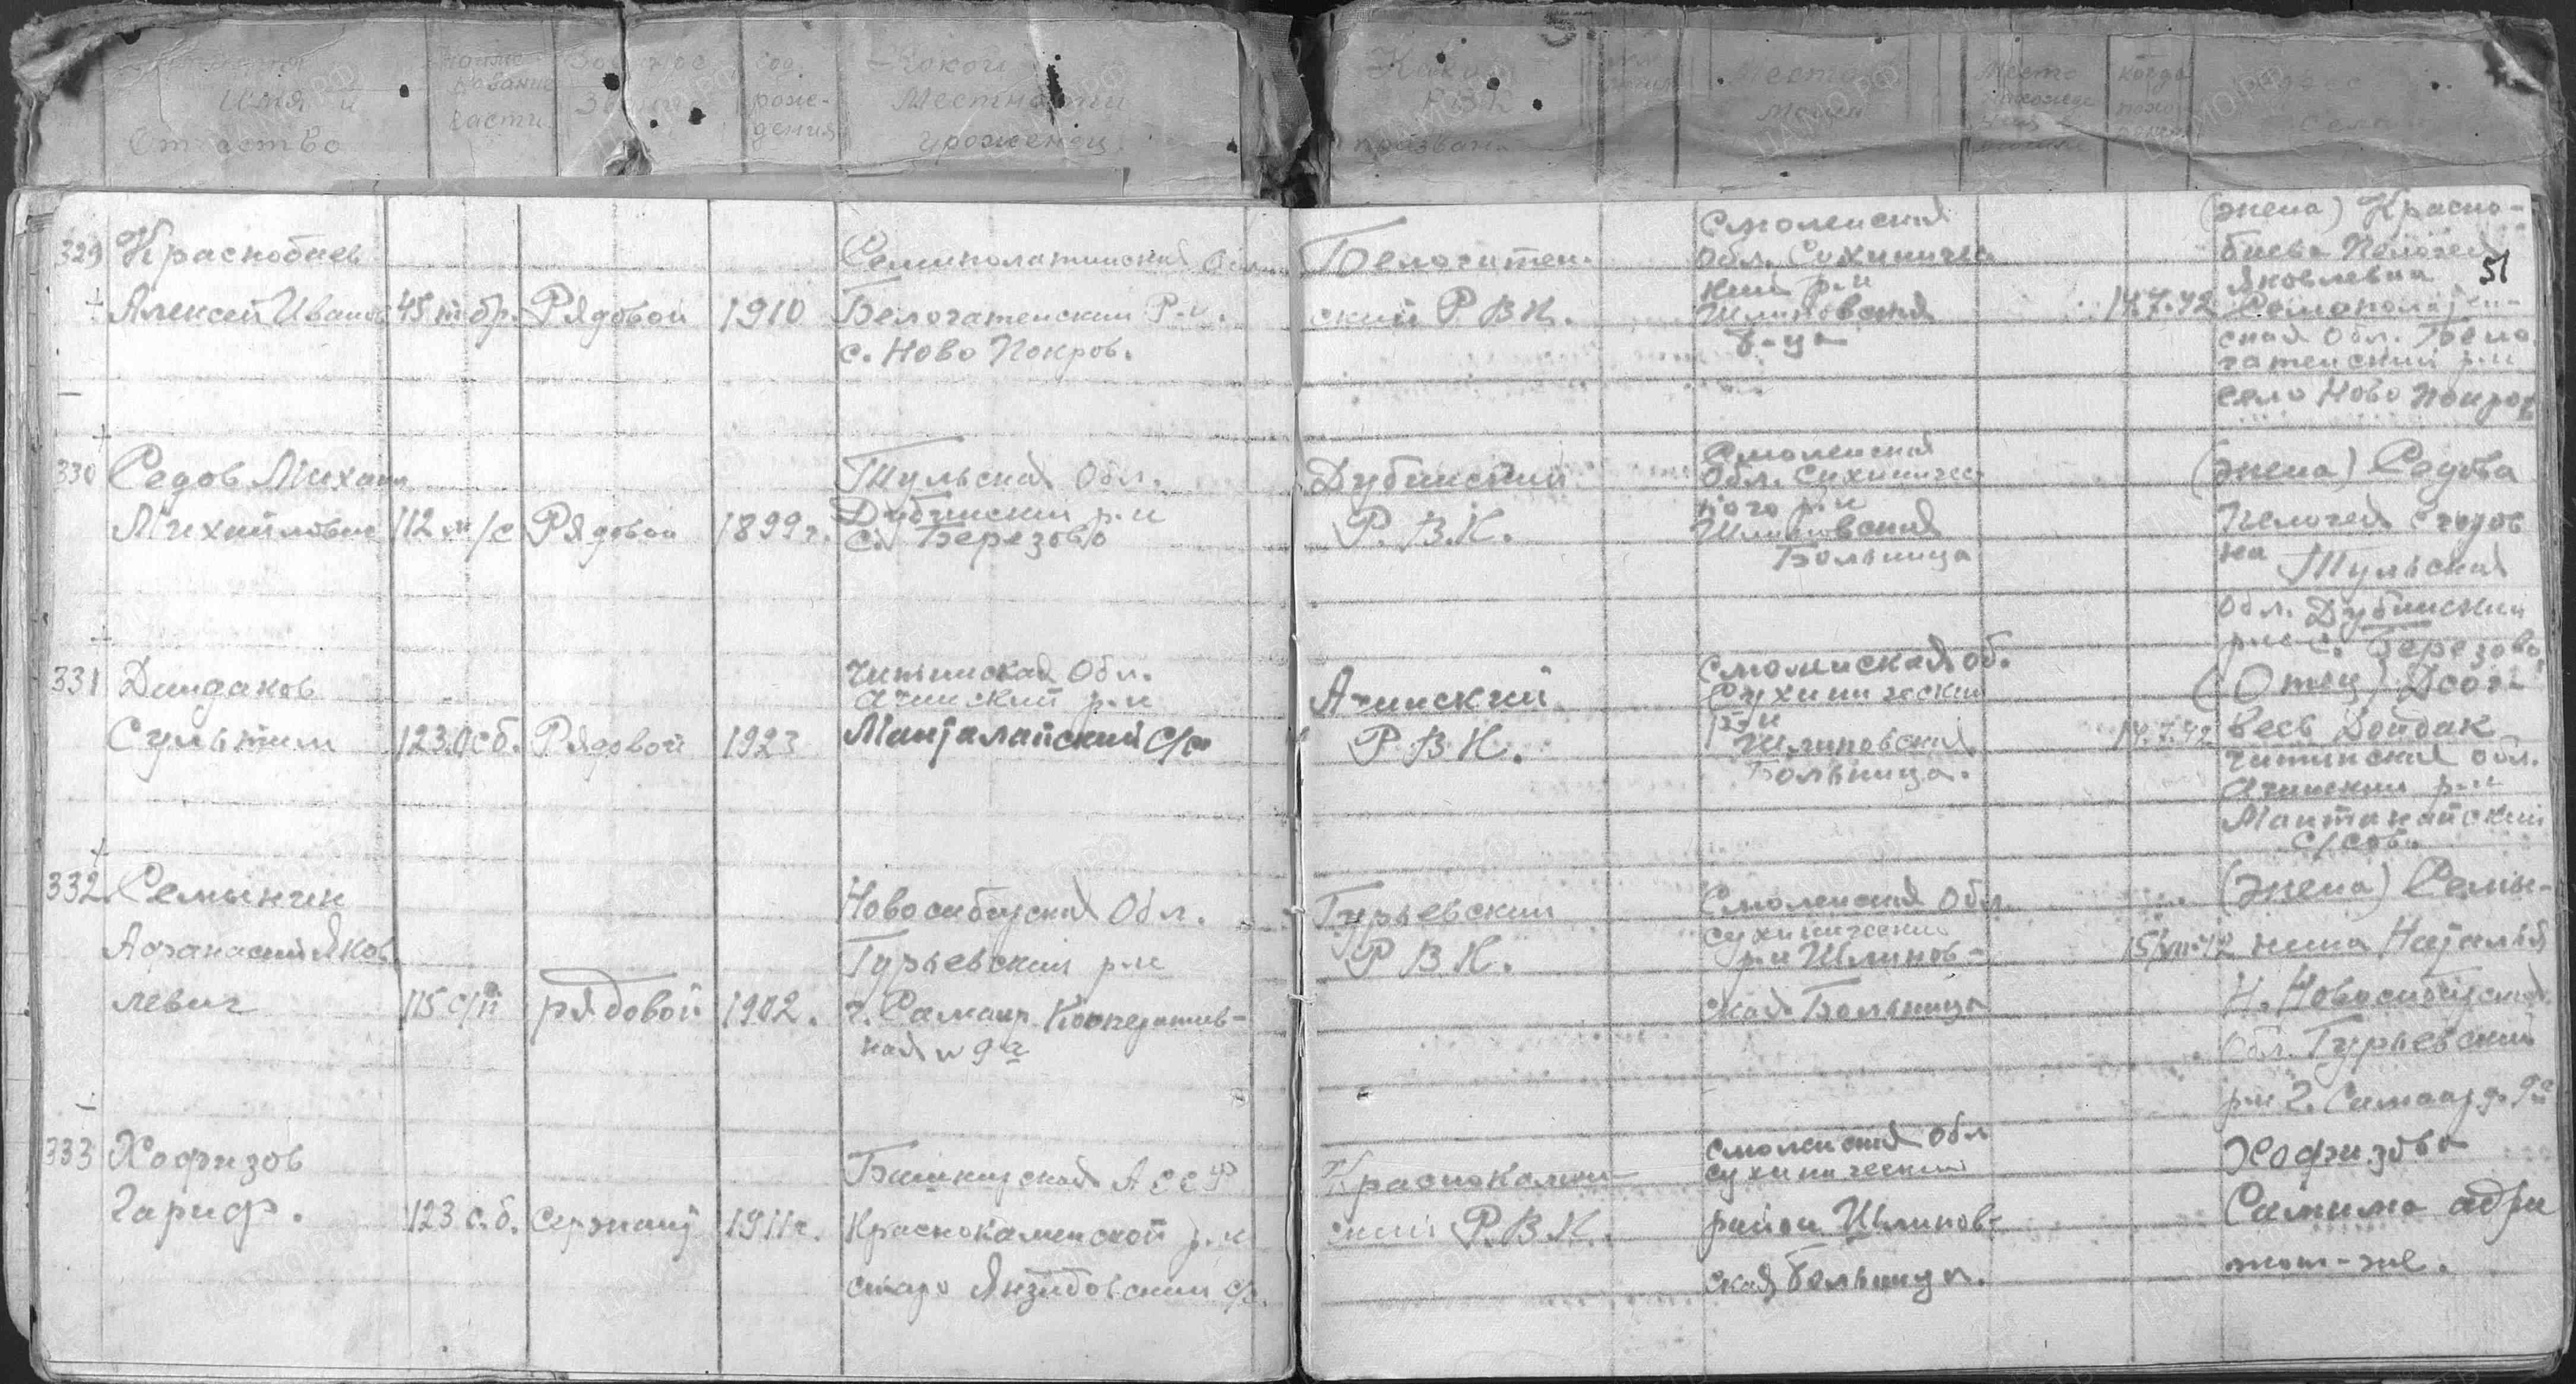 Имя и
Отчество
Наиме-
нование
части
Год
рожде-
дения
Какой
Местности
уроженец
Каким
РВК
призван
Место
когда
похо-
ронен
51
329 Краснобаев
Алексей Иванов 45 тбр. Рядовой 1910
Семипалатинская Обл.
Белогатенский Р.н.
с. Ново Покров.
Белогатен-
ский Р В К.
Смоленская
обл. Сухиниче-
ский р-н
Шлиповская
б-ца
14.7.42
(жена) Красно-
баева Пелагея
Яковлевна
Семопалатин-
ская Обл. Бело
гатенский р-н
село Ново Покров
330 Седов Михаил
Михайлович 112 м/с Рядовой 1899г.
Тульская Обл.
Дубенский р-н
с. Березово
Дубенский
Р. В.К.
Смоленская
Обл. Сухиничес-
кого р-н
Шлиповская
Больница
(жена) Седова
Пелогея
на Тульская
обл. Дубинский
р-н с. Березово
331 Дандаков
Сультим 123.Осб. Рядовой 1923
Читинская Обл.
Агинский р-н
Манталайский С/с
Агинский
Р В К.
Смоленская об.
Сухинический
р-н
Шлиповская
Больница.
14.7.42
(Отец)
Дойдак
Читинская обл.
Агинский р-н
Мантанайский
С/сов.
332. Семынин
Афанасий Яков
левич 115 с/п рядовой 1902.
Новосибирская Обл.
Гурьевский р-н
г. Саланр Кооператив-
ная № 9 а
Гурьевский
Р В К.
Смоленская Обл
сухинический
р-н Шлипов-
ская Больница
15/VII-42
(жена) Семы-
нина Наталья
Н. Новосибирская
Обл. Гурьевский
р-н г. Саланр д. 9а
333 Хафизов
Гариф. 123 с.б. сержант 1911г.
Башкирская АССР
Краснокаменской р-н
старо Янзитовский с/с.
Краснокамен-
ский Р.В.К.
Смоленская Обл
сухинический
район Шлипов-
ская больница.
Хафизова
Салима адрес
тот-же.